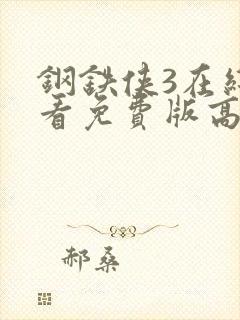 鋼鉄俠3在線
看免費版高
郝桑